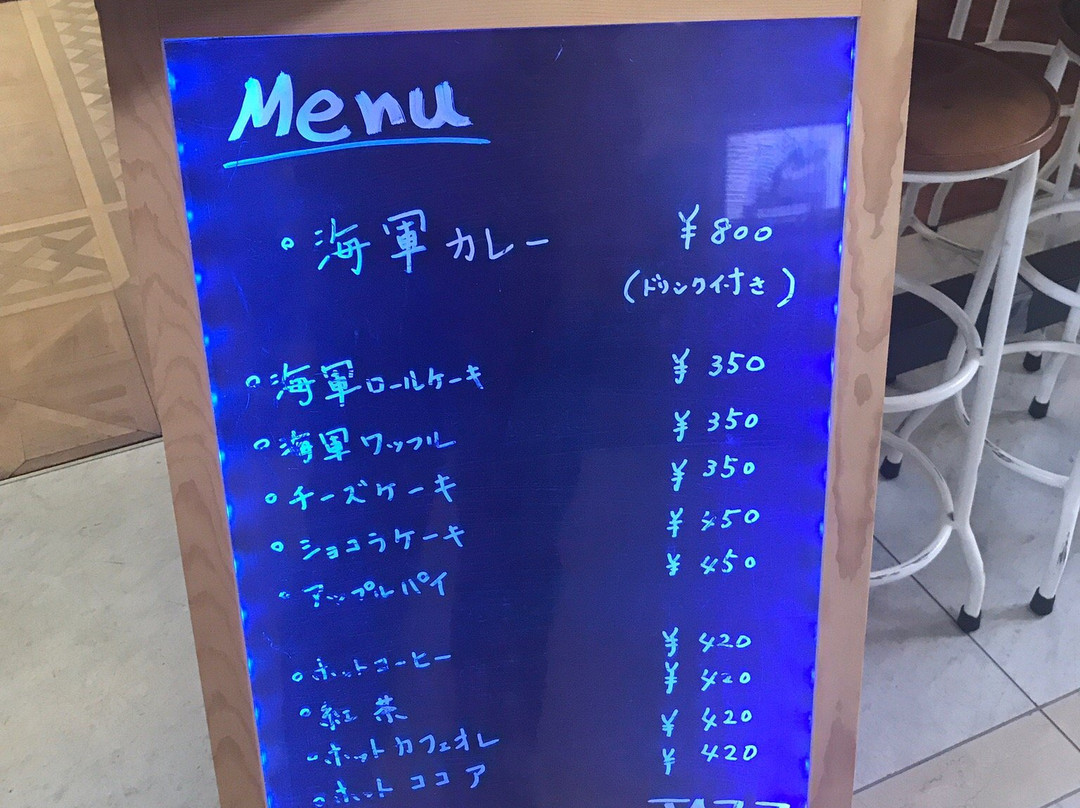 Menu
海軍カレー ¥800
(ドリンク付き)
海軍ロールケーキ ¥350
海軍ワッフル ¥350
チーズケーキ ¥350
ショコラケーキ ¥450
アップルパイ ¥450
ホットコーヒー ¥420
紅茶 ¥420
ホットカフェオレ ¥420
ホットココア ¥420